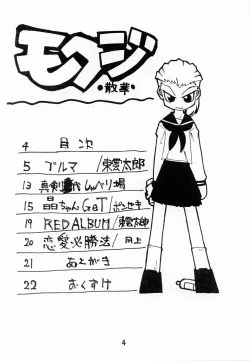 モケジ
・散華・
4 目次
5 ブルマ/東雲太郎
13 真剣 しゃべり場
15 晶ちゃんGeT/
19 RED ALBUM/東雲太郎
20 恋愛必勝法/
21 あとがき
22 おくづけ
4